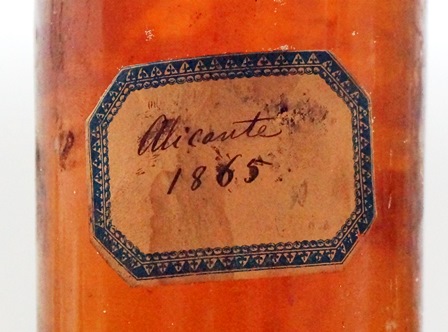 Alicante
1865